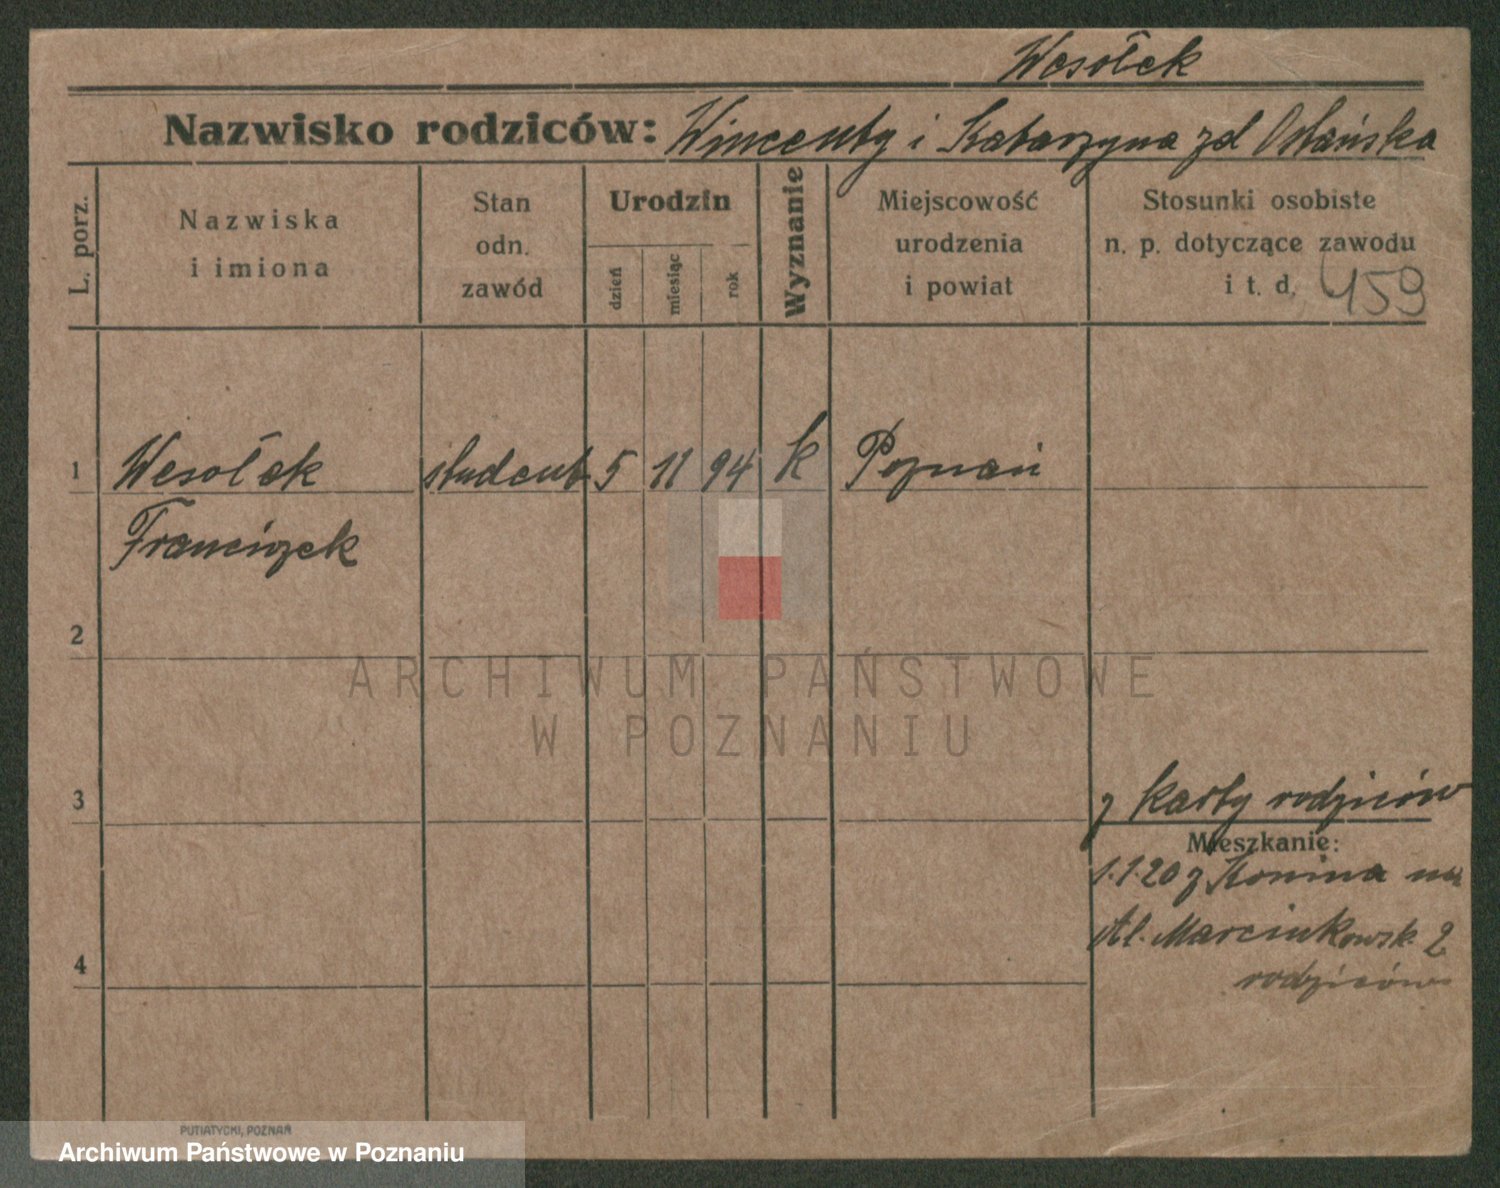 Wesołek
Nazwisko rodziców: Wincenty i Katarzyna zd
L. porz.
Nazwiska
i imiona
Stan
odn.
zawód
Urodzin
dzień
miesiąc
rok
Wyznanie
Miejscowość
urodzenia
i powiat
Stosunki osobiste
n. p. dotyczące zawodu
i t. d. 459
1 Wesołek student 5 11 94 k Poznań
Franciszek
2
ARCHIWUM PAŃSTWOWE
W POZNANIU
3
z karty rodziców
Mieszkanie:
1.1.20 z Konina na
Al. Marcinkowsk. 2
4
rodziców
PUTIATYCKI, POZNAŃ
Archiwum Państwowe w Poznaniu